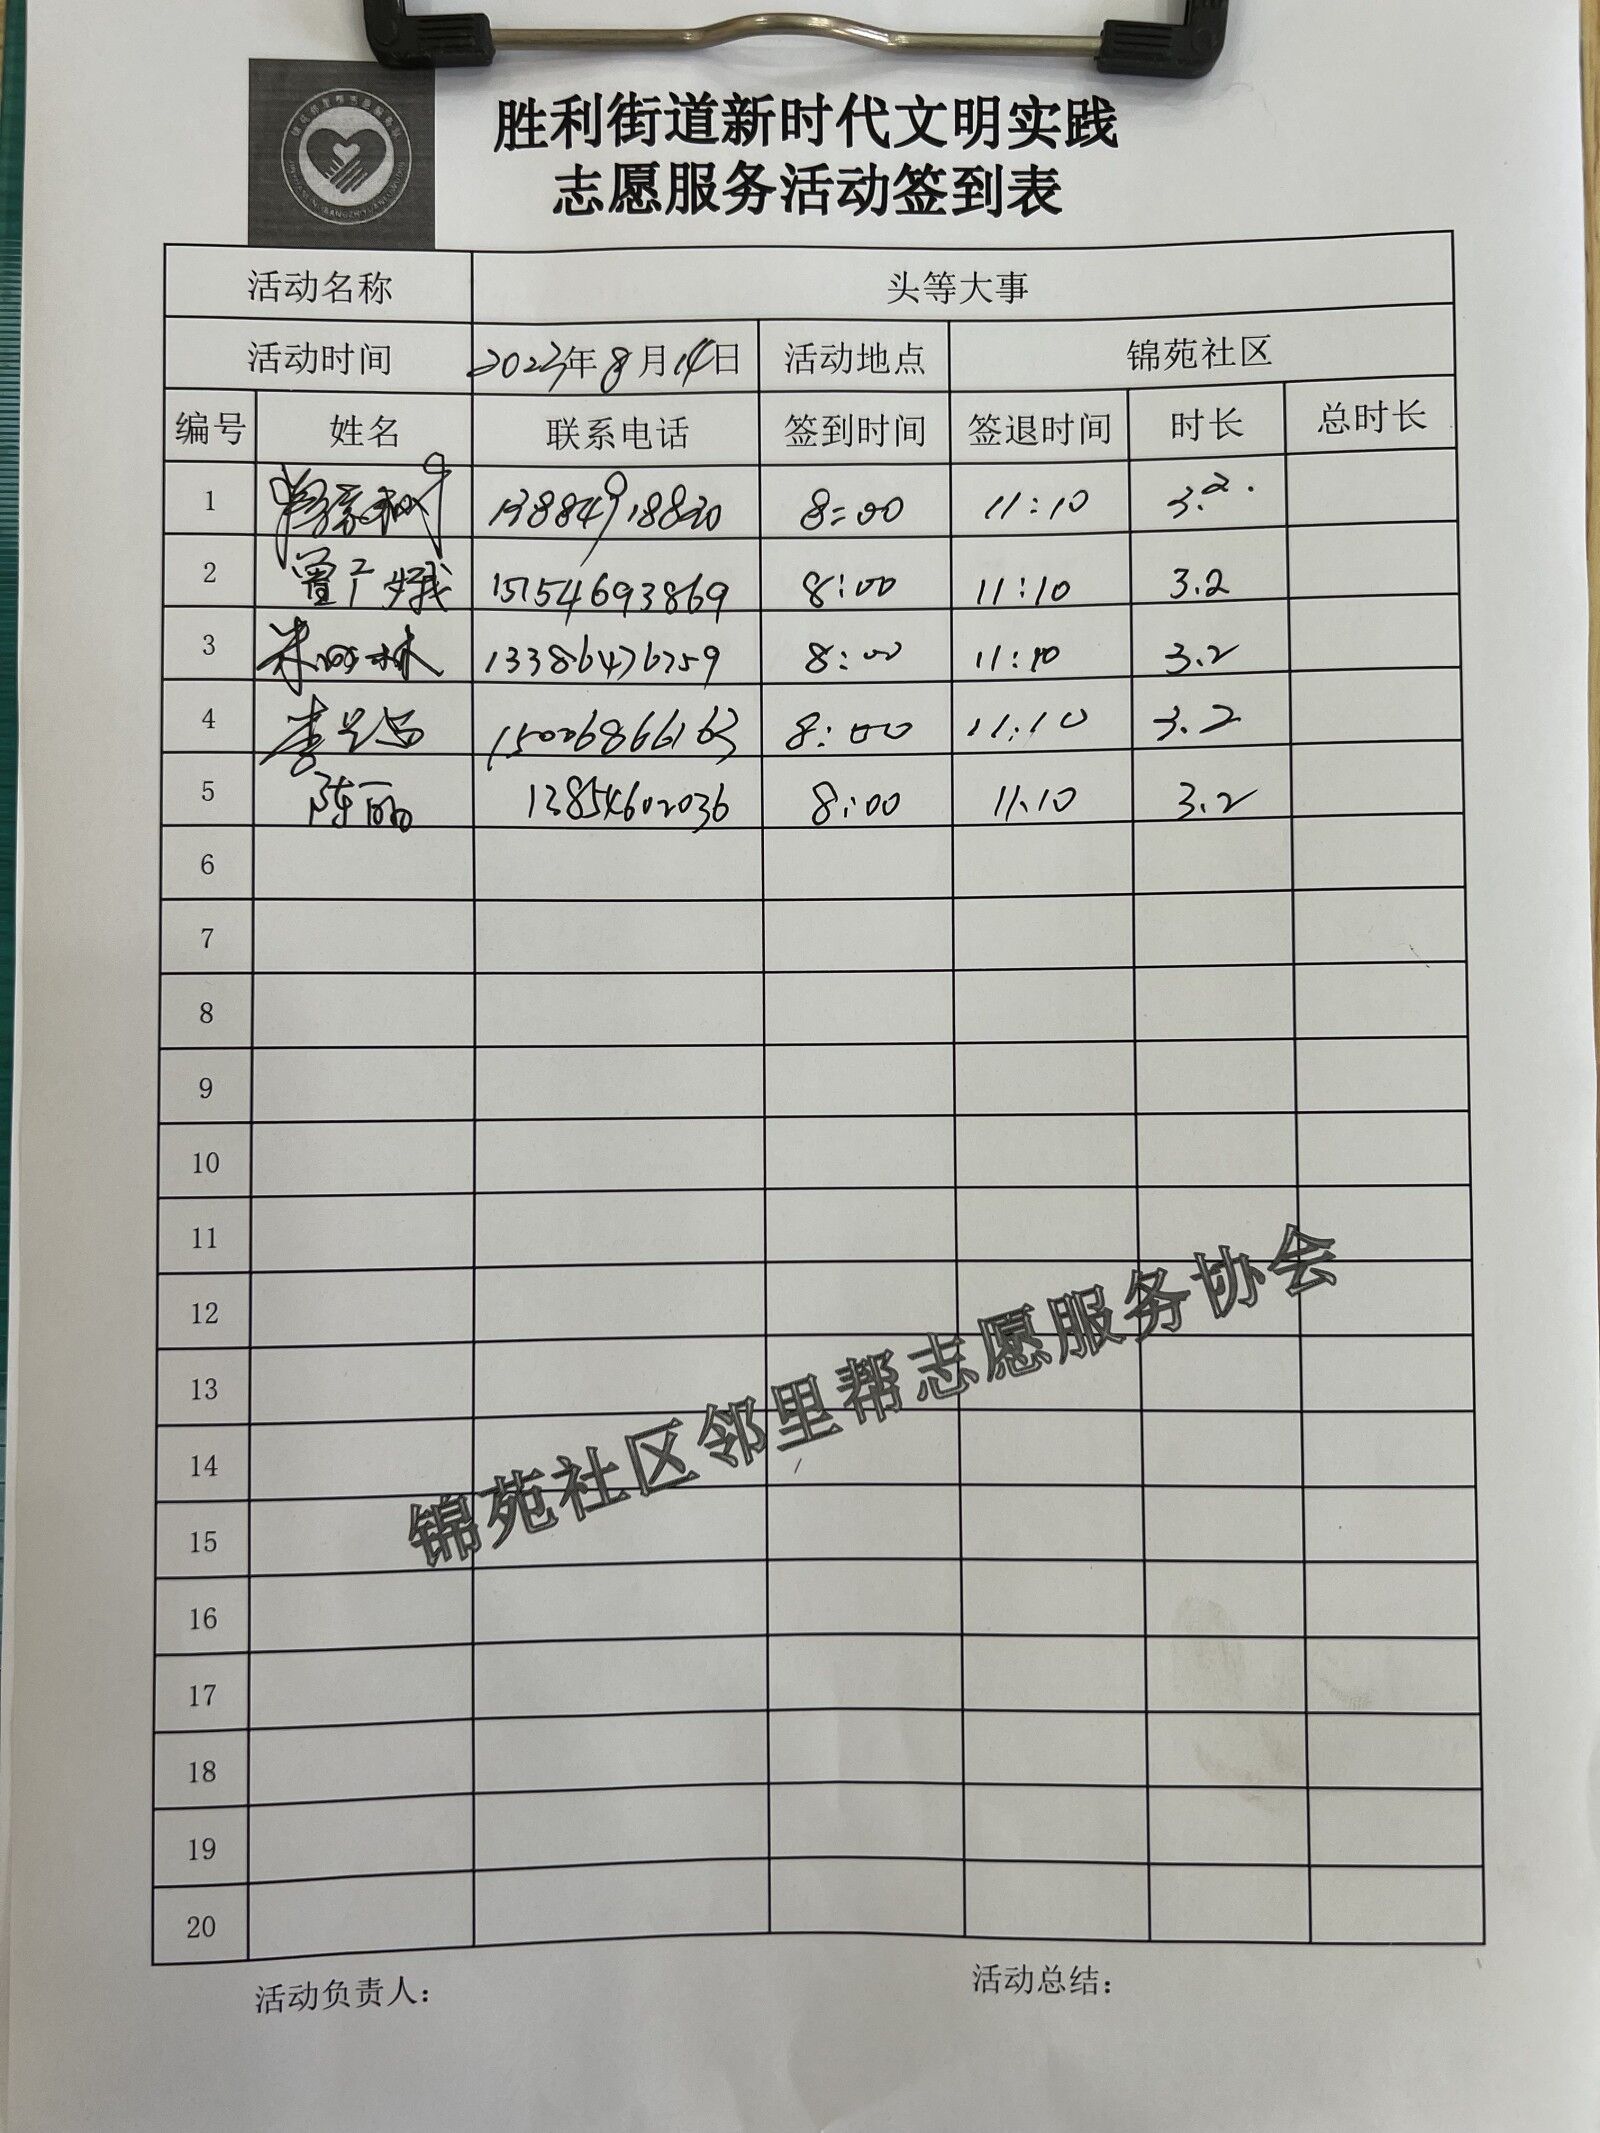 胜利街道新时代文明实践
志愿服务活动签到表
活动名称 头等大事
活动时间 2023年8月14日 活动地点 锦苑社区
编号 姓名 联系电话 签到时间 签退时间 时长 总时长
1 13884918820 8:00 11:10 3.2
2 15154693869 8:00 11:10 3.2
3 13386476759 8:00 11:10 3.2
4 15006866163 8:00 11:10 3.2
5 陈丽 13854602036 8:00 11:10 3.2
6
7
8
9
10
11
12
13
14
15
16
17
18
19
20
锦苑社区邻里帮志愿服务协会
活动负责人: 活动总结: